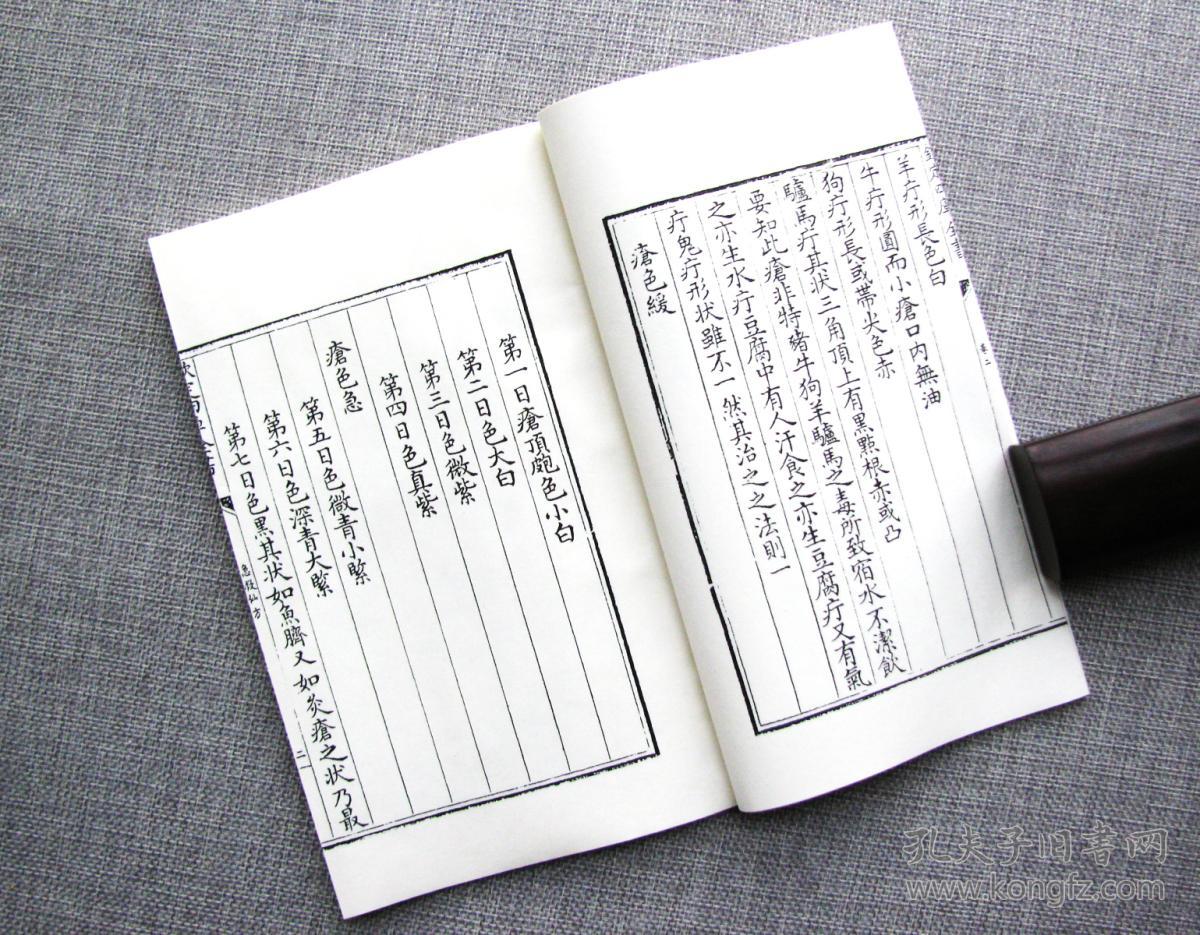 羊疔形長色白
牛疔形圓而小瘡口内無油
狗疔形長或帶尖色亦
驢馬疔其状三角頂上有黑點根赤或凸
要知此瘡非特豬牛狗羊驢馬之毒所致宿水不潔飲
之亦生水疔豆腐中有人汗食之亦生豆腐疔又有氣
疔鬼疔形状雖不一然其治之之法則一
瘡色緩
卷二
第一日瘡頂皰色小白
第二日色大白
第三日色微紫
第四日色真紫
瘡色急
第五日色微青小緊
第六日色深青大緊
第七日色黑其状如魚臍又如灸瘡之状乃最
急救仙方
二
孔夫子旧书网
www.kongfz.com